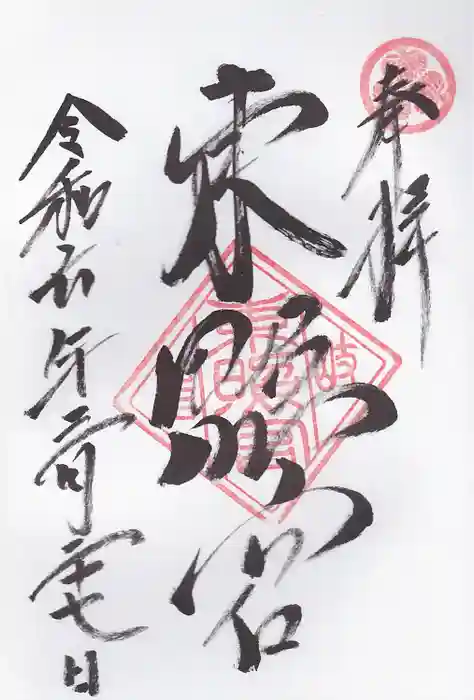 奉拝
東照宮
令和五年二月二十七日